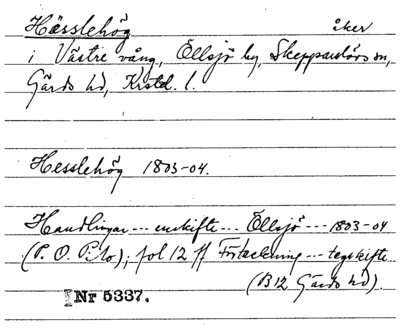 Hässlehög åker
i Västre vång, Öllsjö by, Skepparslövs sn,
Gärds hd, Krstd. l.
Hesslehög 1803-04.
Handlingar --- enskifte --- Öllsjö --- 1803-04
(P. O. Pihlo), fol 12 ff Förteckning --- tegskifte..
(B12 Gärds hd).
Nr 5337.